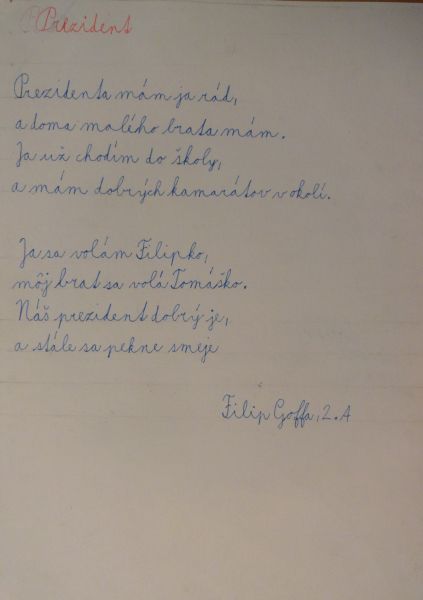 Prezident
Prezidenta mám ja rád,
a doma malého brata mám.
Ja už chodím do školy,
a mám dobrých kamarátov v okolí.
Ja sa volám Filipko,
môj brat sa volá Tomáško.
Náš prezident dobrý je,
a stále sa pekne smeje
Filip Goffa, 2.A